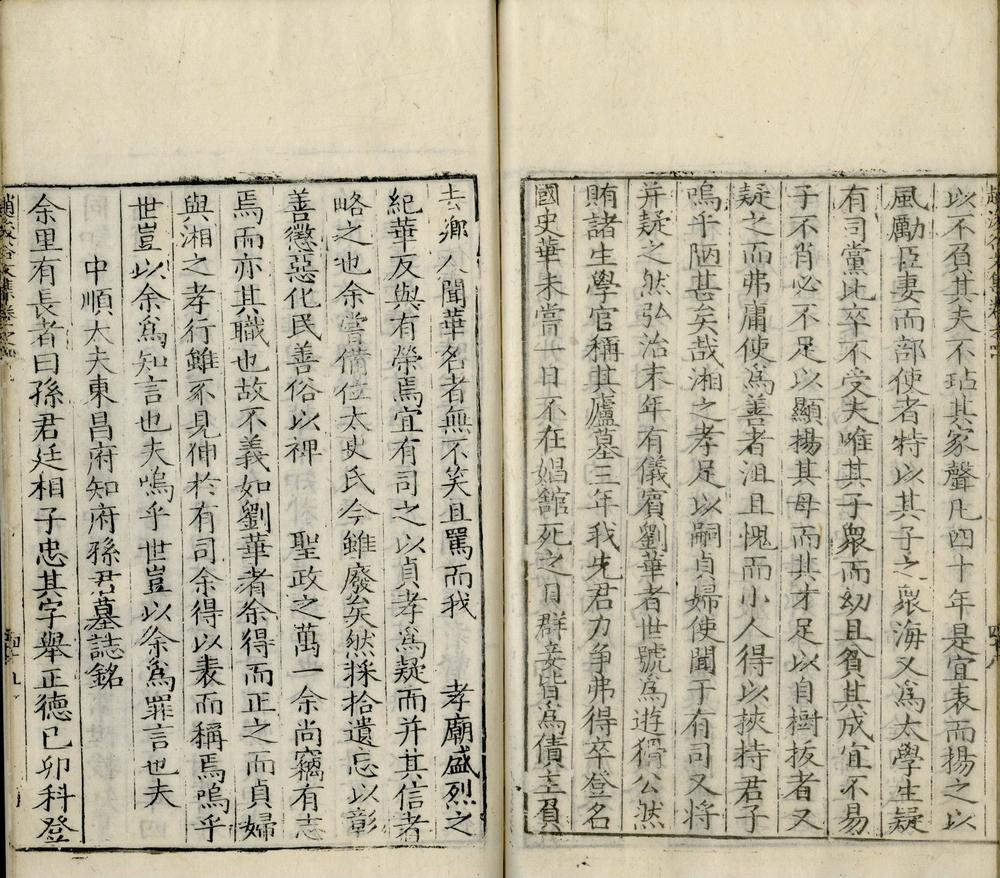 以不負其夫不玷其家聲凡四十年是宜表而揚之以
風勵臣妻而部使者特以其子之衆海又爲太學生疑
有司黨比卒不受夫唯其子衆而幼且貧其成宜不易
子不肖必不足以顯揚其母而其才足以自樹拔者又
疑之而弗庸使爲善者沮且愧而小人得以挾持君子
嗚乎陋甚矣哉湘之孝足以嗣貞婦使聞于有司又將
并疑之然弘治末年有儀賓劉華者世號爲遊猾公然
賄諸生學官稱其廬墓三年我先君力争弗得卒登名
國史華未嘗一日不在娼館死之日群妾皆爲債主負
去鄉人聞華名者無不笑且罵而我 孝廟盛烈之
紀華反與有榮焉宜有司之以貞孝爲疑而并其信者
略之也余嘗備位太史氏今雖廢矣然採拾遺忘以彰
善懲惡化民善俗以裨 聖政之萬一余尚竊有志
焉而亦其職也故不義如劉華者余得而正之而貞婦
與湘之孝行雖不見伸於有司余得以表而稱焉嗚乎
世豈以余爲知言也夫嗚乎世豈以余爲罪言也夫
中順太夫東昌府知府孫君墓誌銘
余里有長者曰孫君廷相子忠其字舉正德已卯科登